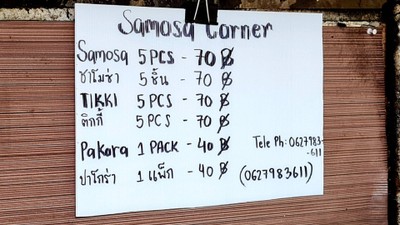 Samosa Corner
Samosa 5 PCS - 70 ฿
ซาโมซ่า 5 ชิ้น - 70 ฿
TIKKI 5 PCS - 70 ฿
ติกกี้ 5 PCS - 70 ฿
Pakora 1 PACK - 40 ฿ Tele Ph: 0627983-
-611
ปาโกร่า 1 แพ็ก - 40 ฿ (0627983611)